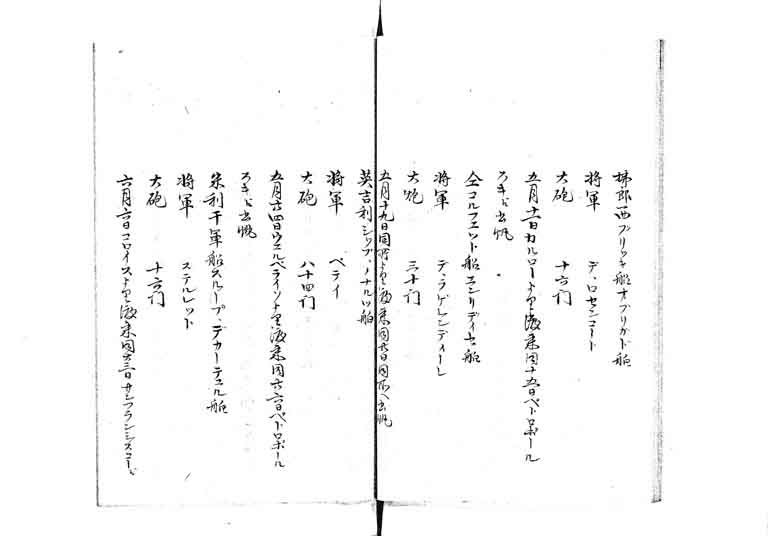 拂郎西ブリツキ船オブリガド船
将軍 デ、ロセンコート
大砲 十六门
五月十一日カルローより渡来同十五日ペトロポール
スキド出帆
仝コルフエツト船エンリディセ船
将軍 デ、ラゲレンディーレ
大炮 三十门
五月十九日同所より渡来同廿日同所へ出帆
英吉利シツプ、ノナルツ船
将軍 ペライ
大砲 八十四门
五月廿四日ウエルペライソより渡来同廿六日ペトロポール
スキド出帆
米利干軍船スループ、デカーテユル船
将軍 ステルレット
大砲 十六门
六月六日コロイストより渡来同廿三日サンフランシスコ